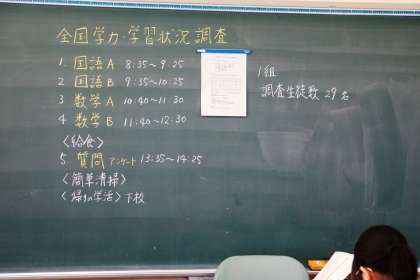 全国学力・学習状況調査
1. 国語A 8:35～9:25
2 国語B 9:35～10:25
3 数学A 10:40～11:30
4 数学B 11:40～12:30
〈給食〉
5. 質問アンケート 13:35～14:25
〈簡単清掃〉
〈帰りの学活〉下校
1組
調査生徒数 29名